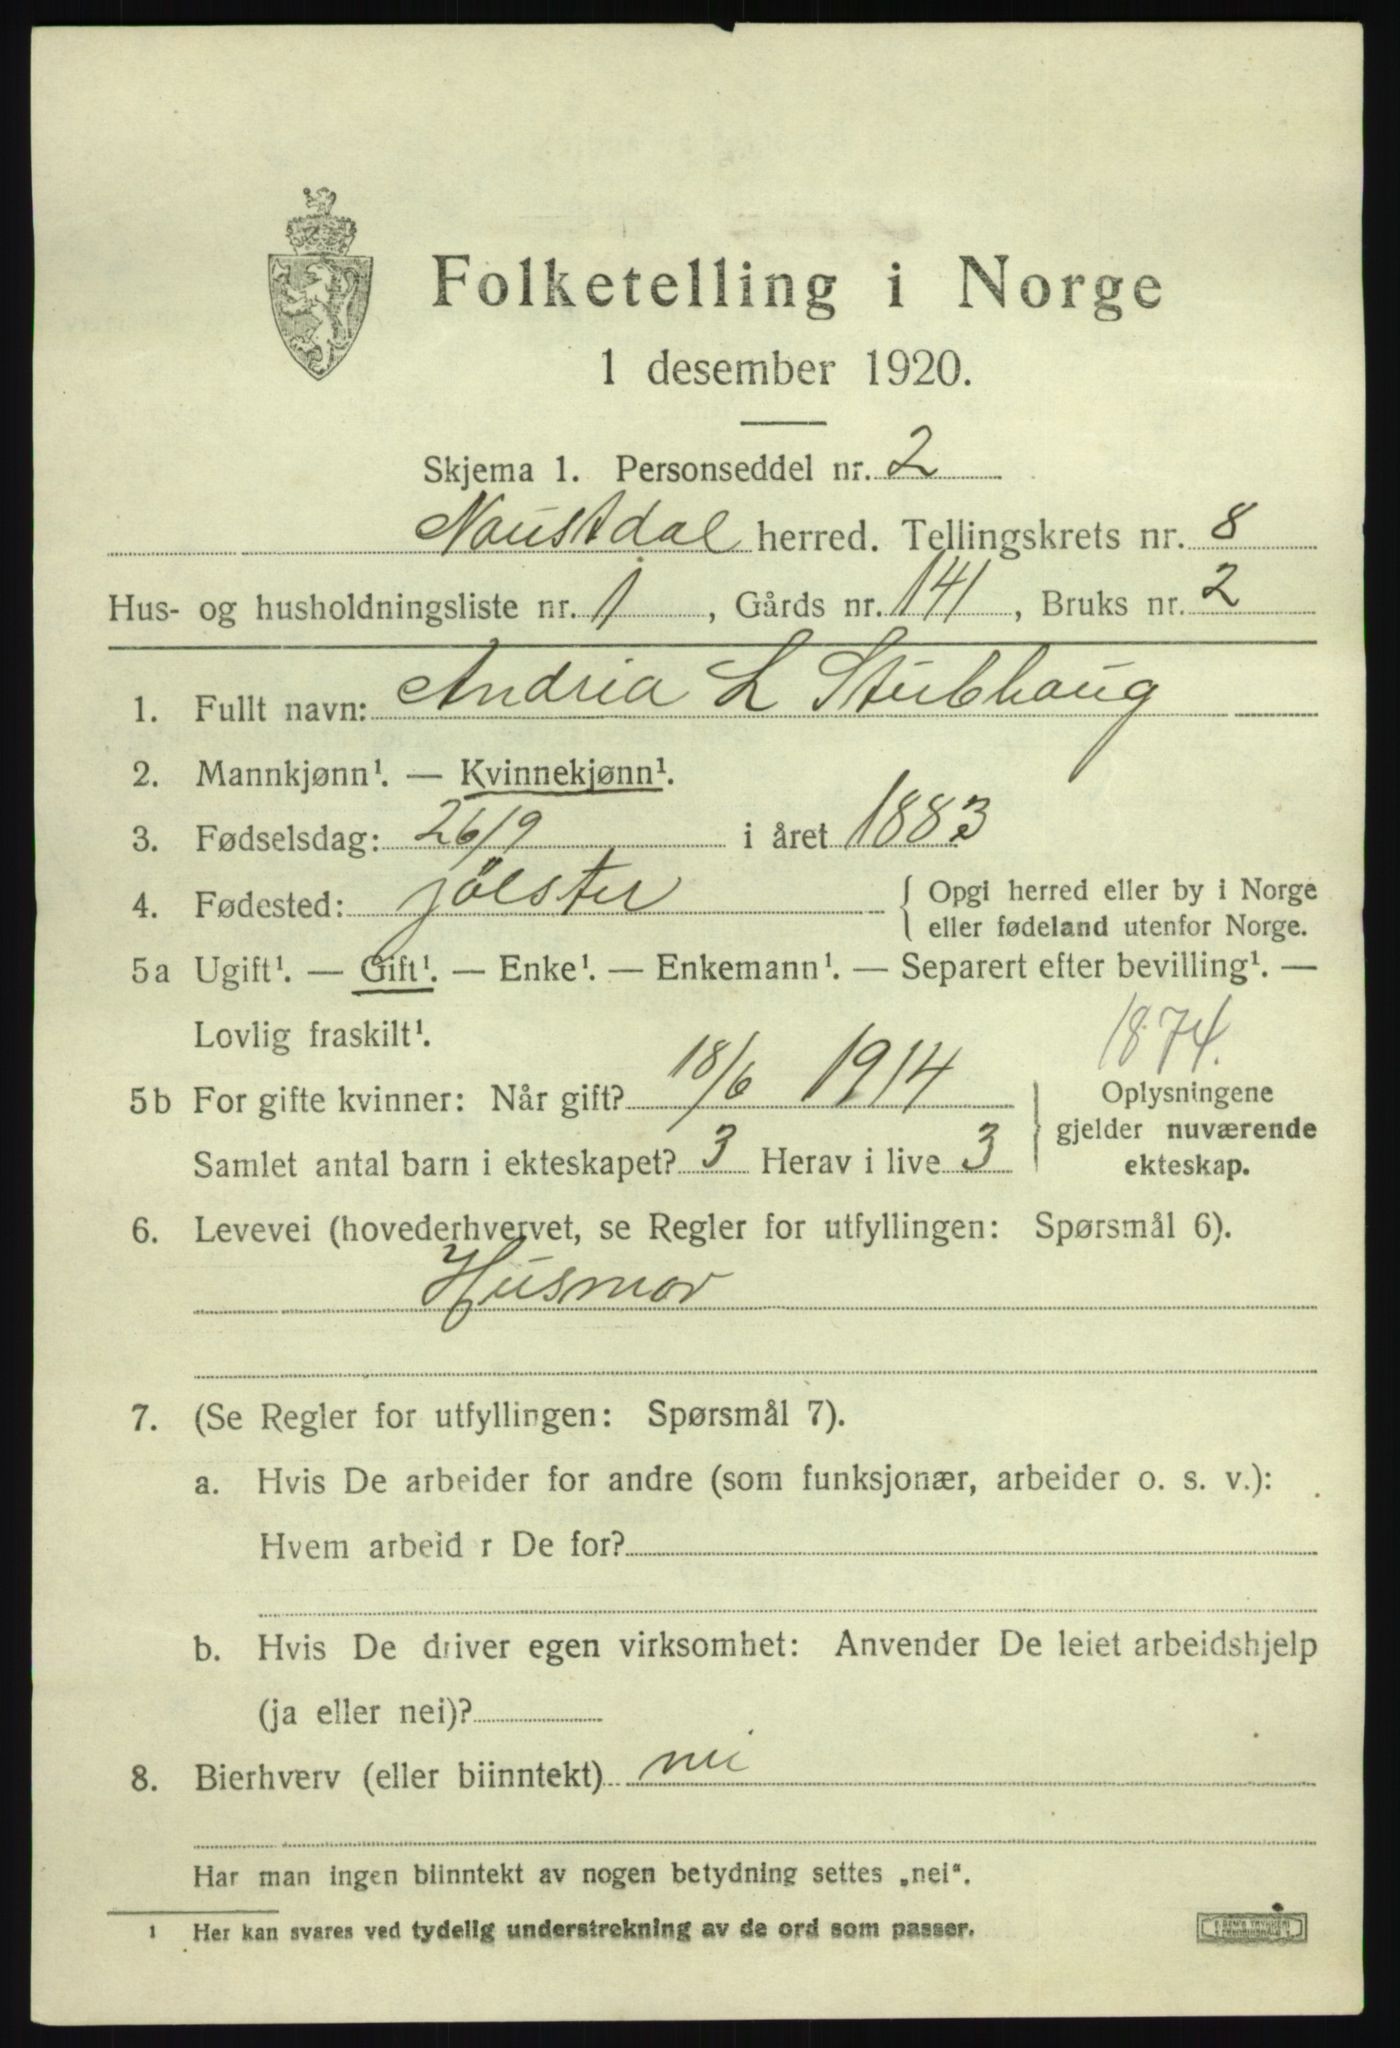 Folketelling i Norge
1 desember 1920.
Skjema 1. Personseddel nr. 2
Naustdal herred. Tellingskrets nr. 8
Hus- og husholdningsliste nr. 1, Gårds nr. 141, Bruks nr. 2
1. Fullt navn: Andria L Stubhaug
2. Mannkjønn¹. — Kvinnekjønn¹.
3. Fødselsdag: 26/9 i året 1883
4. Fødested: jölster { Opgi herred eller by i Norge
eller fødeland utenfor Norge.
5a Ugift¹. — Gift¹. — Enke¹. — Enkemann¹. — Separert efter bevilling¹. —
Lovlig fraskilt¹.
1874.
5b For gifte kvinner: Når gift? 18/6 1914
Samlet antal barn i ekteskapet? 3 Herav i live 3
Oplysningene
gjelder nuværende
ekteskap.
6. Levevei (hovederhvervet, se Regler for utfyllingen: Spørsmål 6).
Husmor
7. (Se Regler for utfyllingen: Spørsmål 7).
a. Hvis De arbeider for andre (som funksjonær, arbeider o. s. v.):
Hvem arbeid r De for?
b. Hvis De driver egen virksomhet: Anvender De leiet arbeidshjelp
(ja eller nei)?
8. Bierhverv (eller biinntekt) nei
Har man ingen biinntekt av nogen betydning settes „nei“.
1 Her kan svares ved tydelig understrekning av de ord som passer.